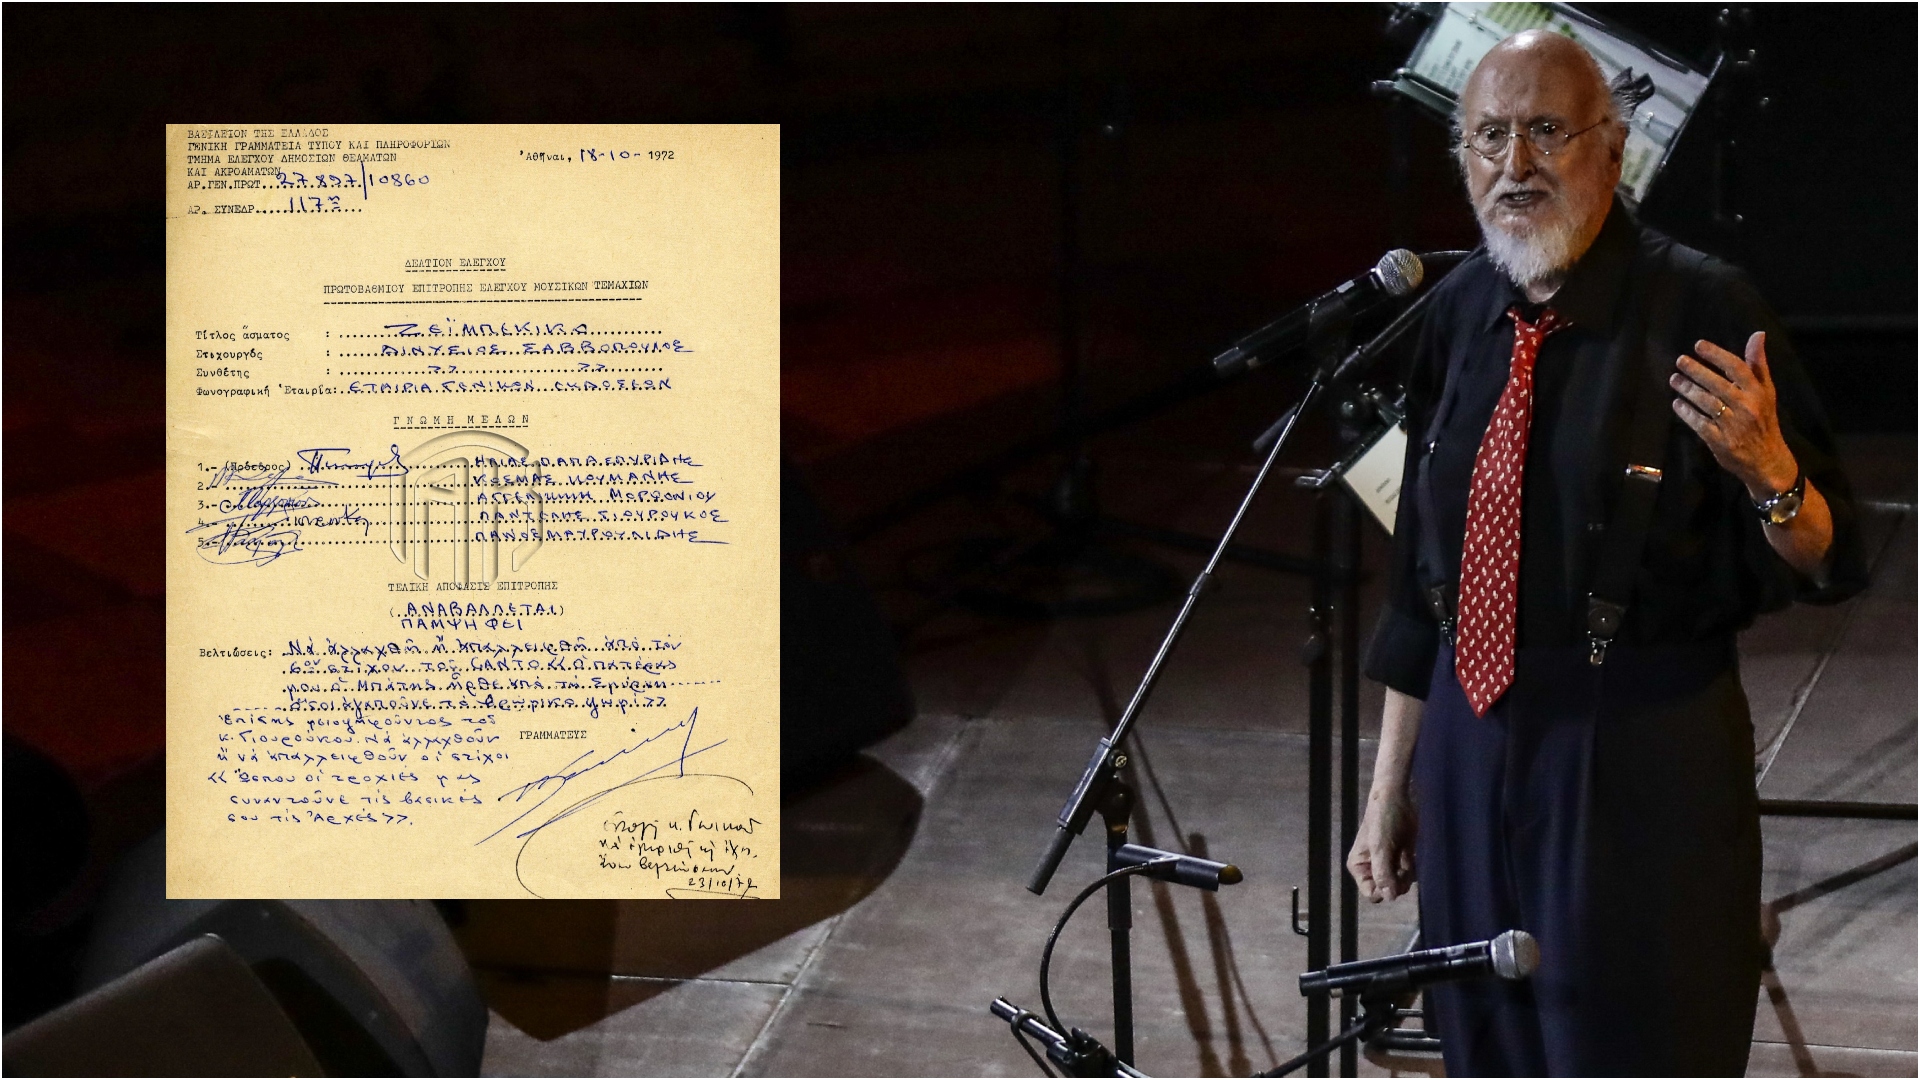 ΒΑΣΙΛΕΙΟΝ ΤΗΣ ΕΛΛΑΔΟΣ
ΓΕΝΙΚΗ ΓΡΑΜΜΑΤΕΙΑ ΤΥΠΟΥ ΚΑΙ ΠΛΗΡΟΦΟΡΙΩΝ
ΤΜΗΜΑ ΕΛΕΓΧΟΥ ΔΗΜΟΣΙΩΝ ΘΕΑΜΑΤΩΝ
ΚΑΙ ΑΚΡΟΑΜΑΤΩΝ
'Αθῆναι, 18-10- 1972
ΑΡ.ΓΕΝ.ΠΡΩΤ...27.897/10860
ΑΡ. ΣΥΝΕΔΡ....117η
ΔΕΛΤΙΟΝ ΕΛΕΓΧΟΥ
ΠΡΩΤΟΒΑΘΜΙΟΥ ΕΠΙΤΡΟΠΗΣ ΕΛΕΓΧΟΥ ΜΟΥΣΙΚΩΝ ΤΕΜΑΧΙΩΝ
Τίτλος ἄσματος : ΖΕΪΜΠΕΚΙΚΟ
Στιχουργός : ΔΙΝΥΣΙΟΣ ΣΑΒΒΟΠΟΥΛΟΣ
Συνθέτης : >> >>
Φωνογραφική 'Εταιρία: ΕΤΑΙΡΙΑ ΓΕΝΙΚΩΝ ΕΚΔΟΣΕΩΝ
ΓΝΩΜΗ ΜΕΛΩΝ
1.- (Πρόεδρος) ΗΛΙΑΣ ΠΑΠΑΣΠΥΡΙΔΗΣ
2.- ΚΟΣΜΑΣ ΚΟΥΜΑΝΗΣ
3.- ΜΟΡΦΟΝΙΟΥ
4.- ΠΑΝΤΕΛΗΣ ΓΙΟΥΡΟΥΚΟΣ
5.- ΠΑΝΟΣ ΜΑΥΡΟΥΛΙΔΗΣ
ΤΕΛΙΚΗ ΑΠΟΦΑΣΙΣ ΕΠΙΤΡΟΠΗΣ
(ΑΝΑΒΑΛΛΕΤΑΙ)
ΠΑΜΨΗΦΕΙ
Βελτιώσεις: Νά ἀλλαχθῆ ἤ ἀπαλλειφθῆ ἀπό τόν
6ον στίχον τοῦ CANTO << Ὁ πατέρας
μου ὁ Μπάτης ἦρθε ἀπό τή Σμύρνη
κ. Γιουρούκου. Νά ἀλλαχθοῦν
ἤ νά ἀπαλλειφθοῦν οἱ στίχοι
<< Ὥσπου οἱ τροχιές μας
συναντοῦνε τίς βασικές
σου τίς Ἀρχές>>.
ΓΡΑΜΜΑΤΕΥΣ
23/10/72